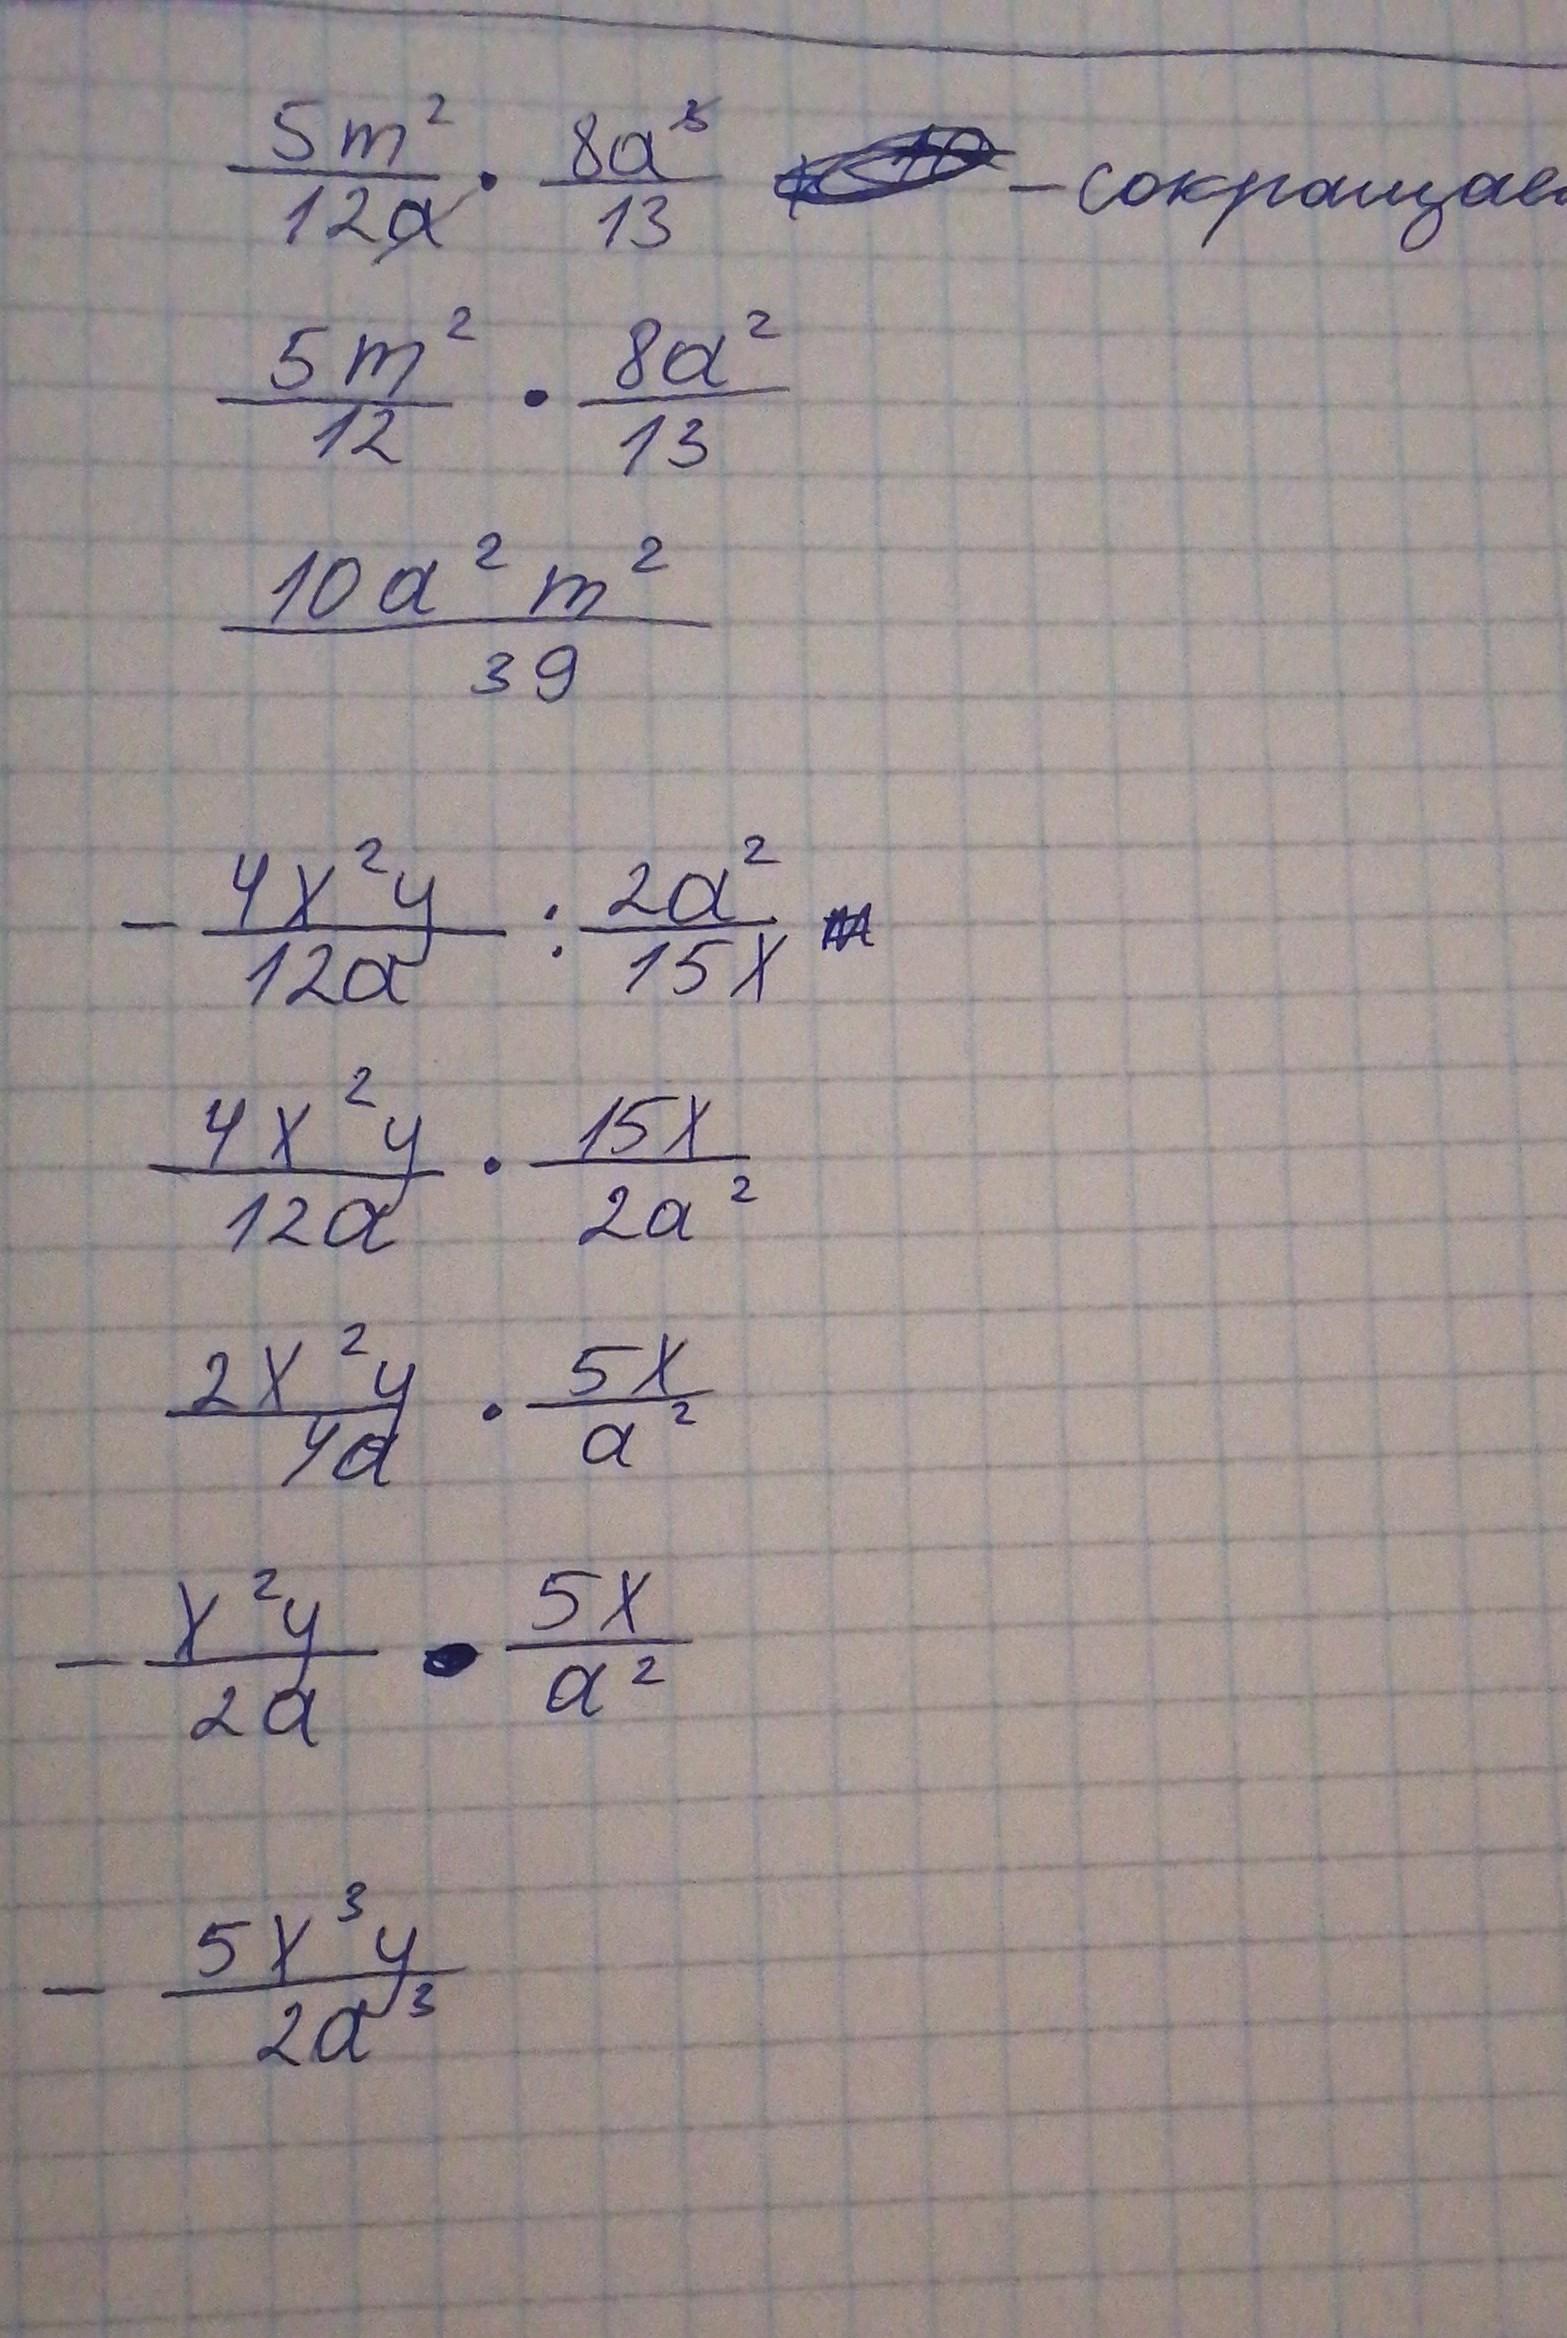 5m² / 12a · 8a³ / 13 – сокращаем
5m² / 12 · 8a² / 13
10a² m² / 39
– 4x²y / 12a : 2a² / 15x
4x²y / 12a · 15x / 2a²
2x²y / 4a · 5x / a²
– x²y / 2a · 5x / a²
– 5x³y / 2a³